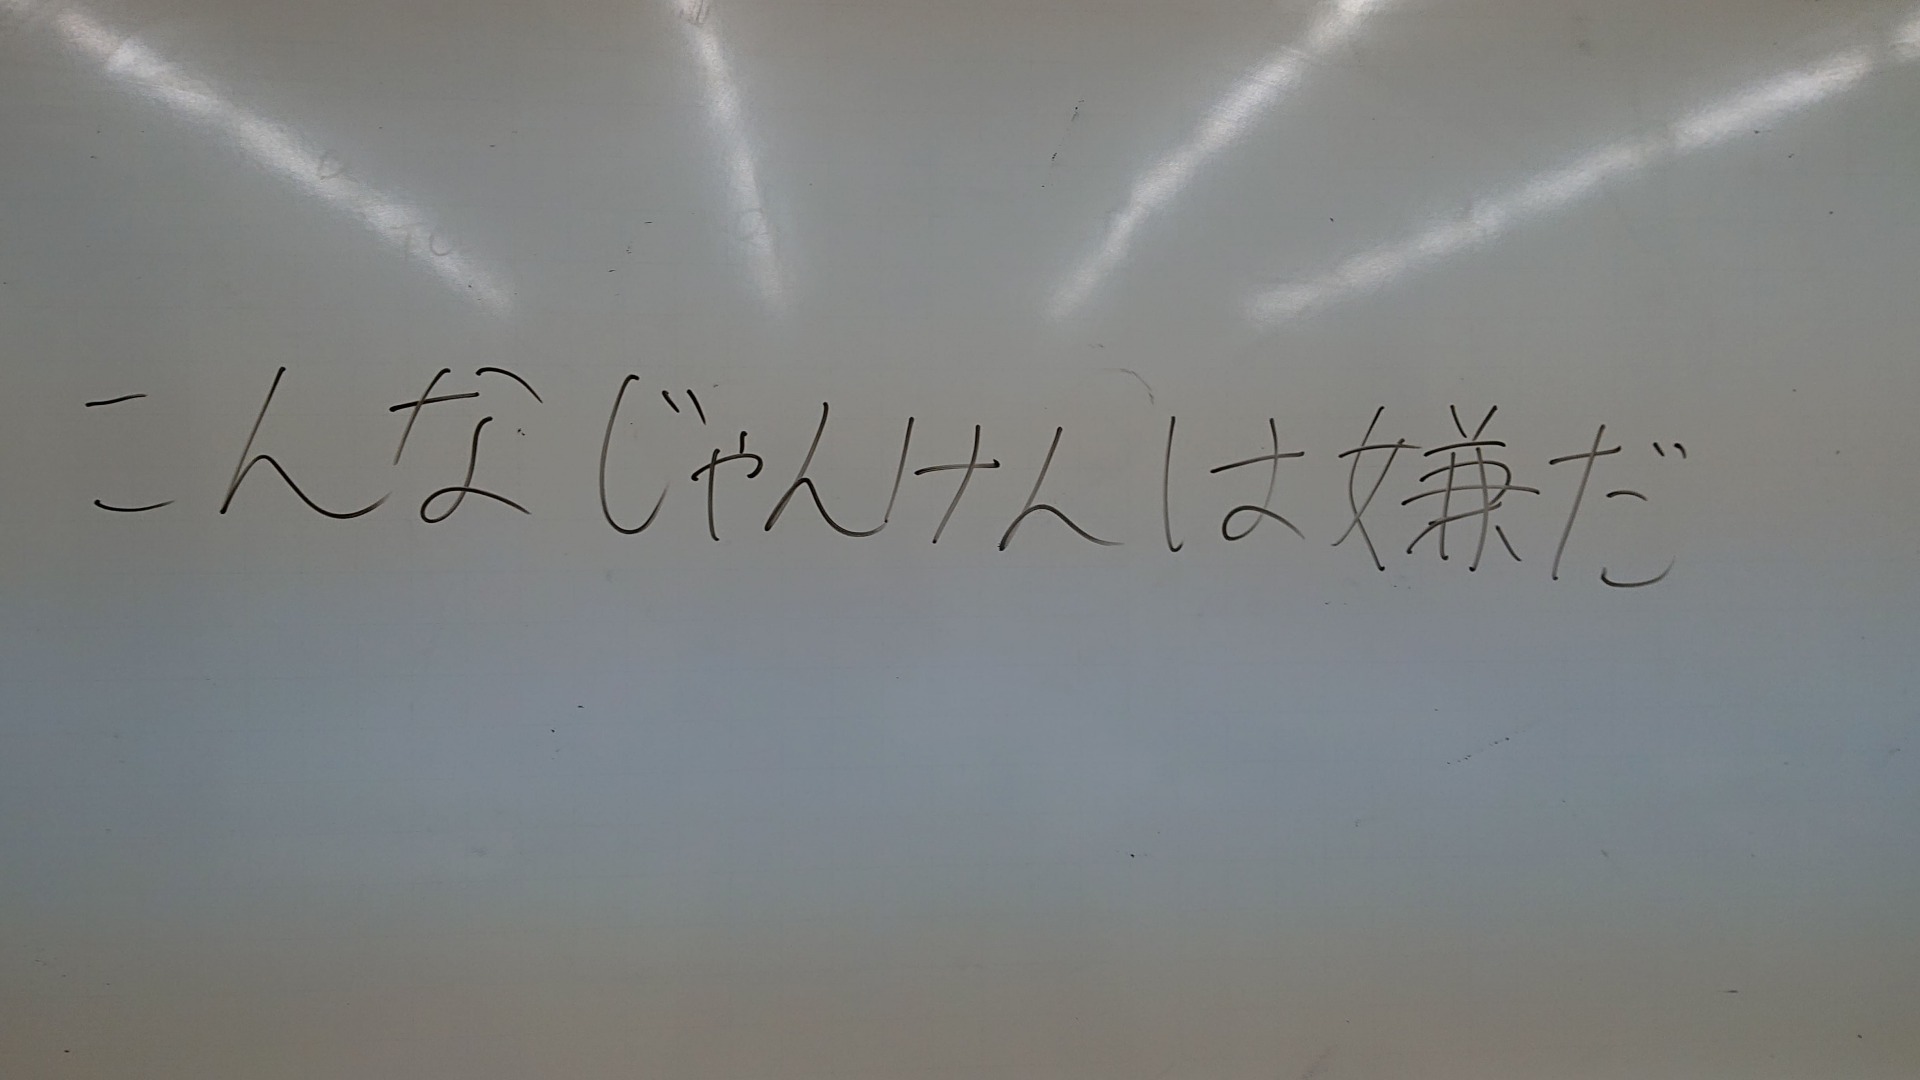 こんなじゃんけんは嫌だ